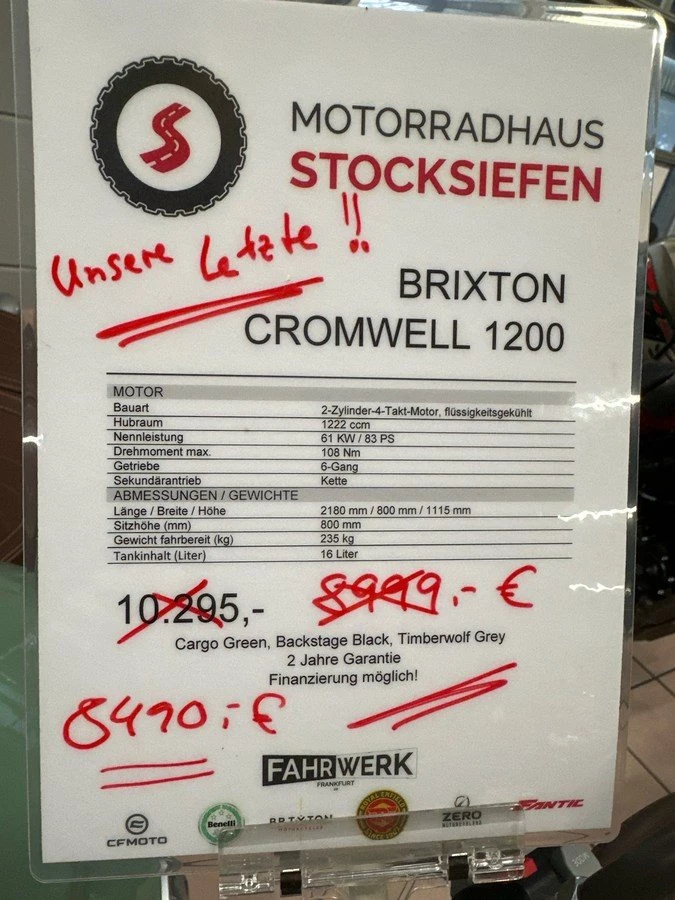 MOTORRADHAUS
STOCKSIEFEN
Unsere Letzte !!
BRIXTON
CROMWELL 1200
MOTOR
Bauart 2-Zylinder-4-Takt-Motor, flüssigkeitsgekühlt
Hubraum 1222 ccm
Nennleistung 61 KW / 83 PS
Drehmoment max. 108 Nm
Getriebe 6-Gang
Sekundärantrieb Kette
ABMESSUNGEN / GEWICHTE
Länge / Breite / Höhe 2180 mm / 800 mm / 1115 mm
Sitzhöhe (mm) 800 mm
Gewicht fahrbereit (kg) 235 kg
Tankinhalt (Liter) 16 Liter
10.295,- 8999,- €
Cargo Green, Backstage Black, Timberwolf Grey
2 Jahre Garantie
Finanzierung möglich!
8490,- €
FAHRWERK
FRANKFURT
CFMOTO
Benelli
BRIXTON
MOTORCYCLES
ROYAL ENFIELD
ZERO
MOTORCYCLES
FANTIC